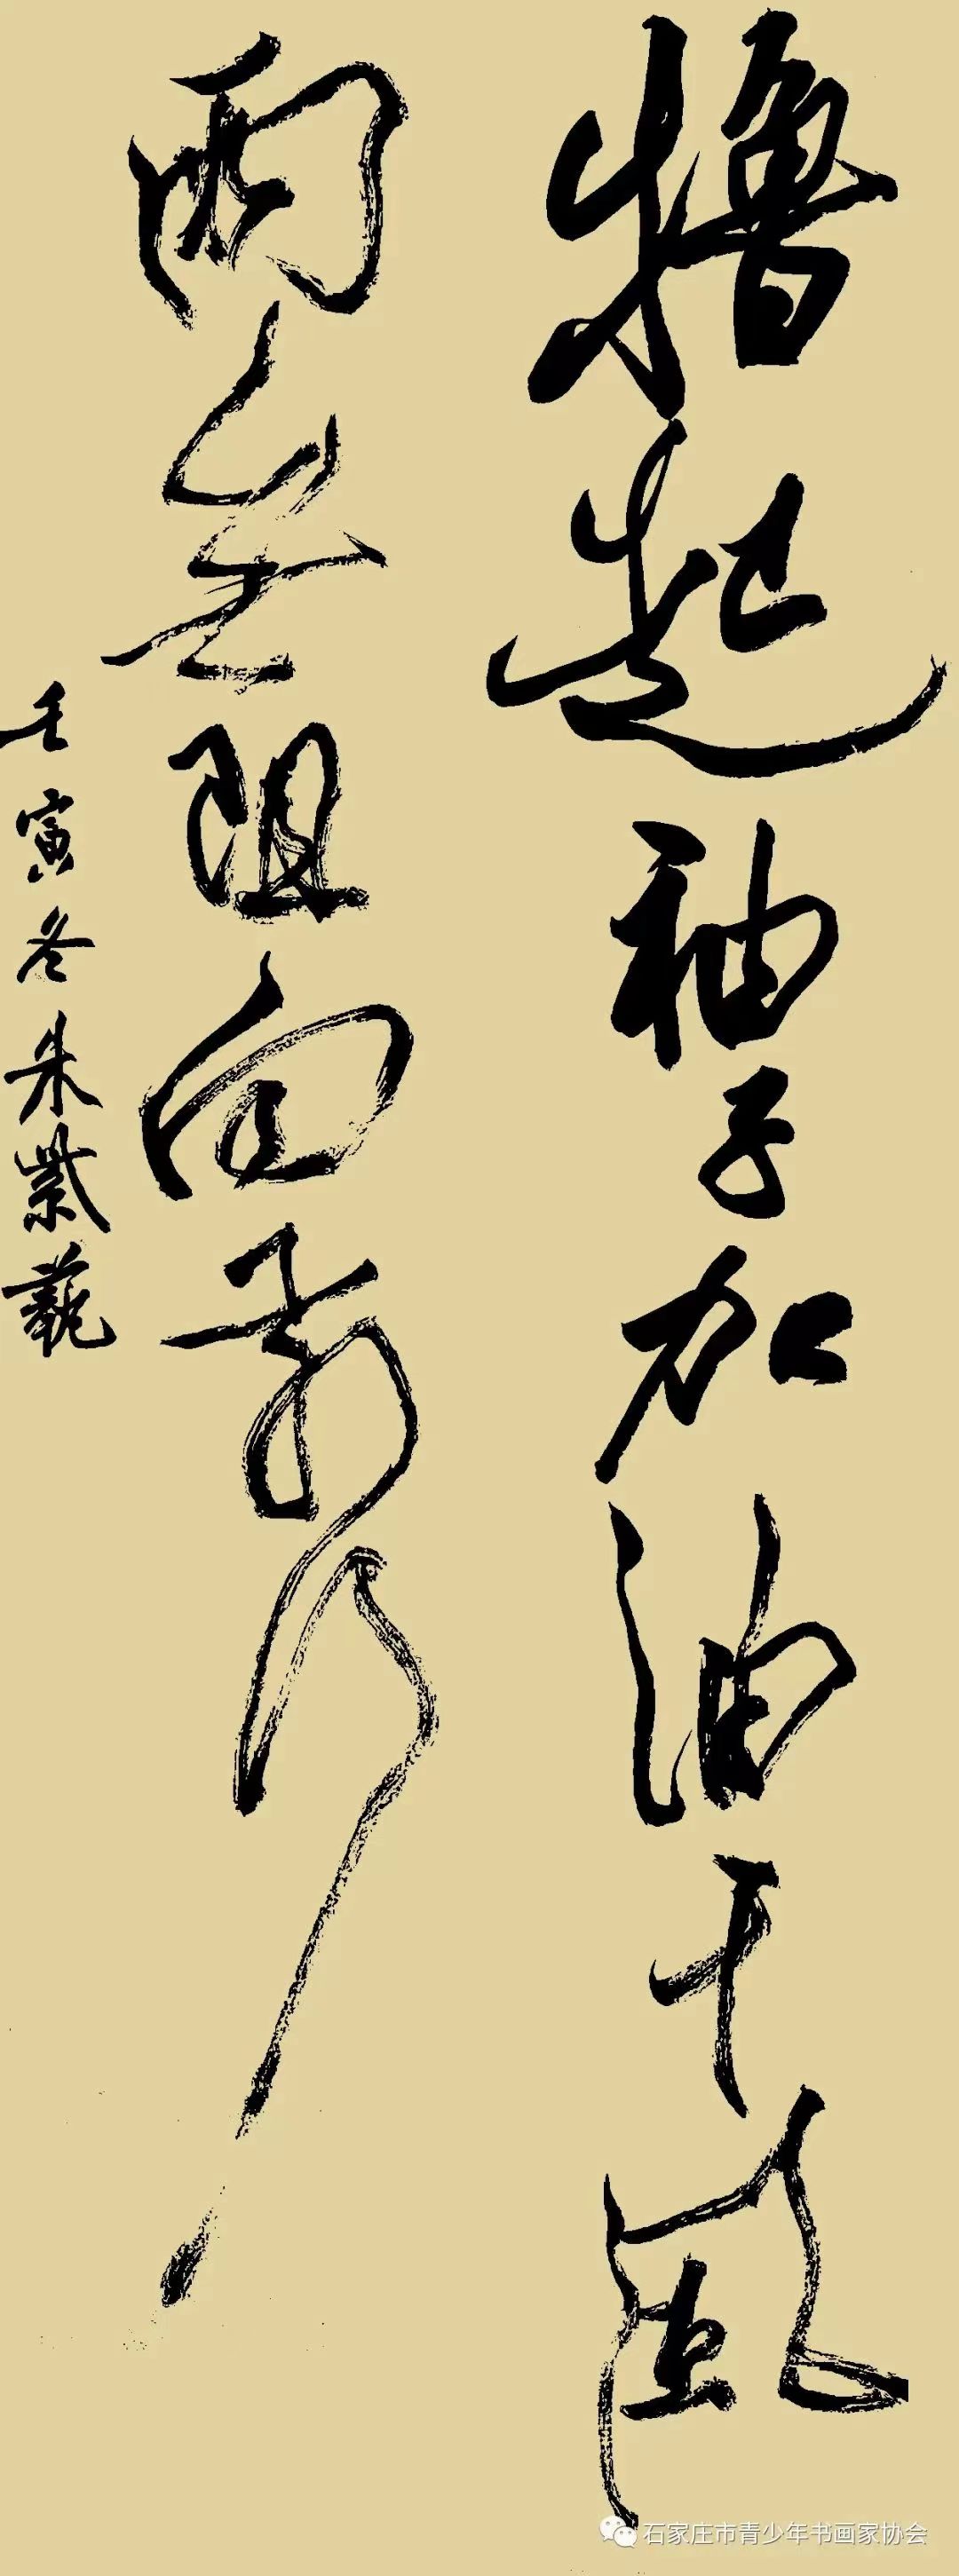 撸起袖子加油干风
雨无阻向前行
壬寅冬朱紫
石家庄市青少年书画家协会